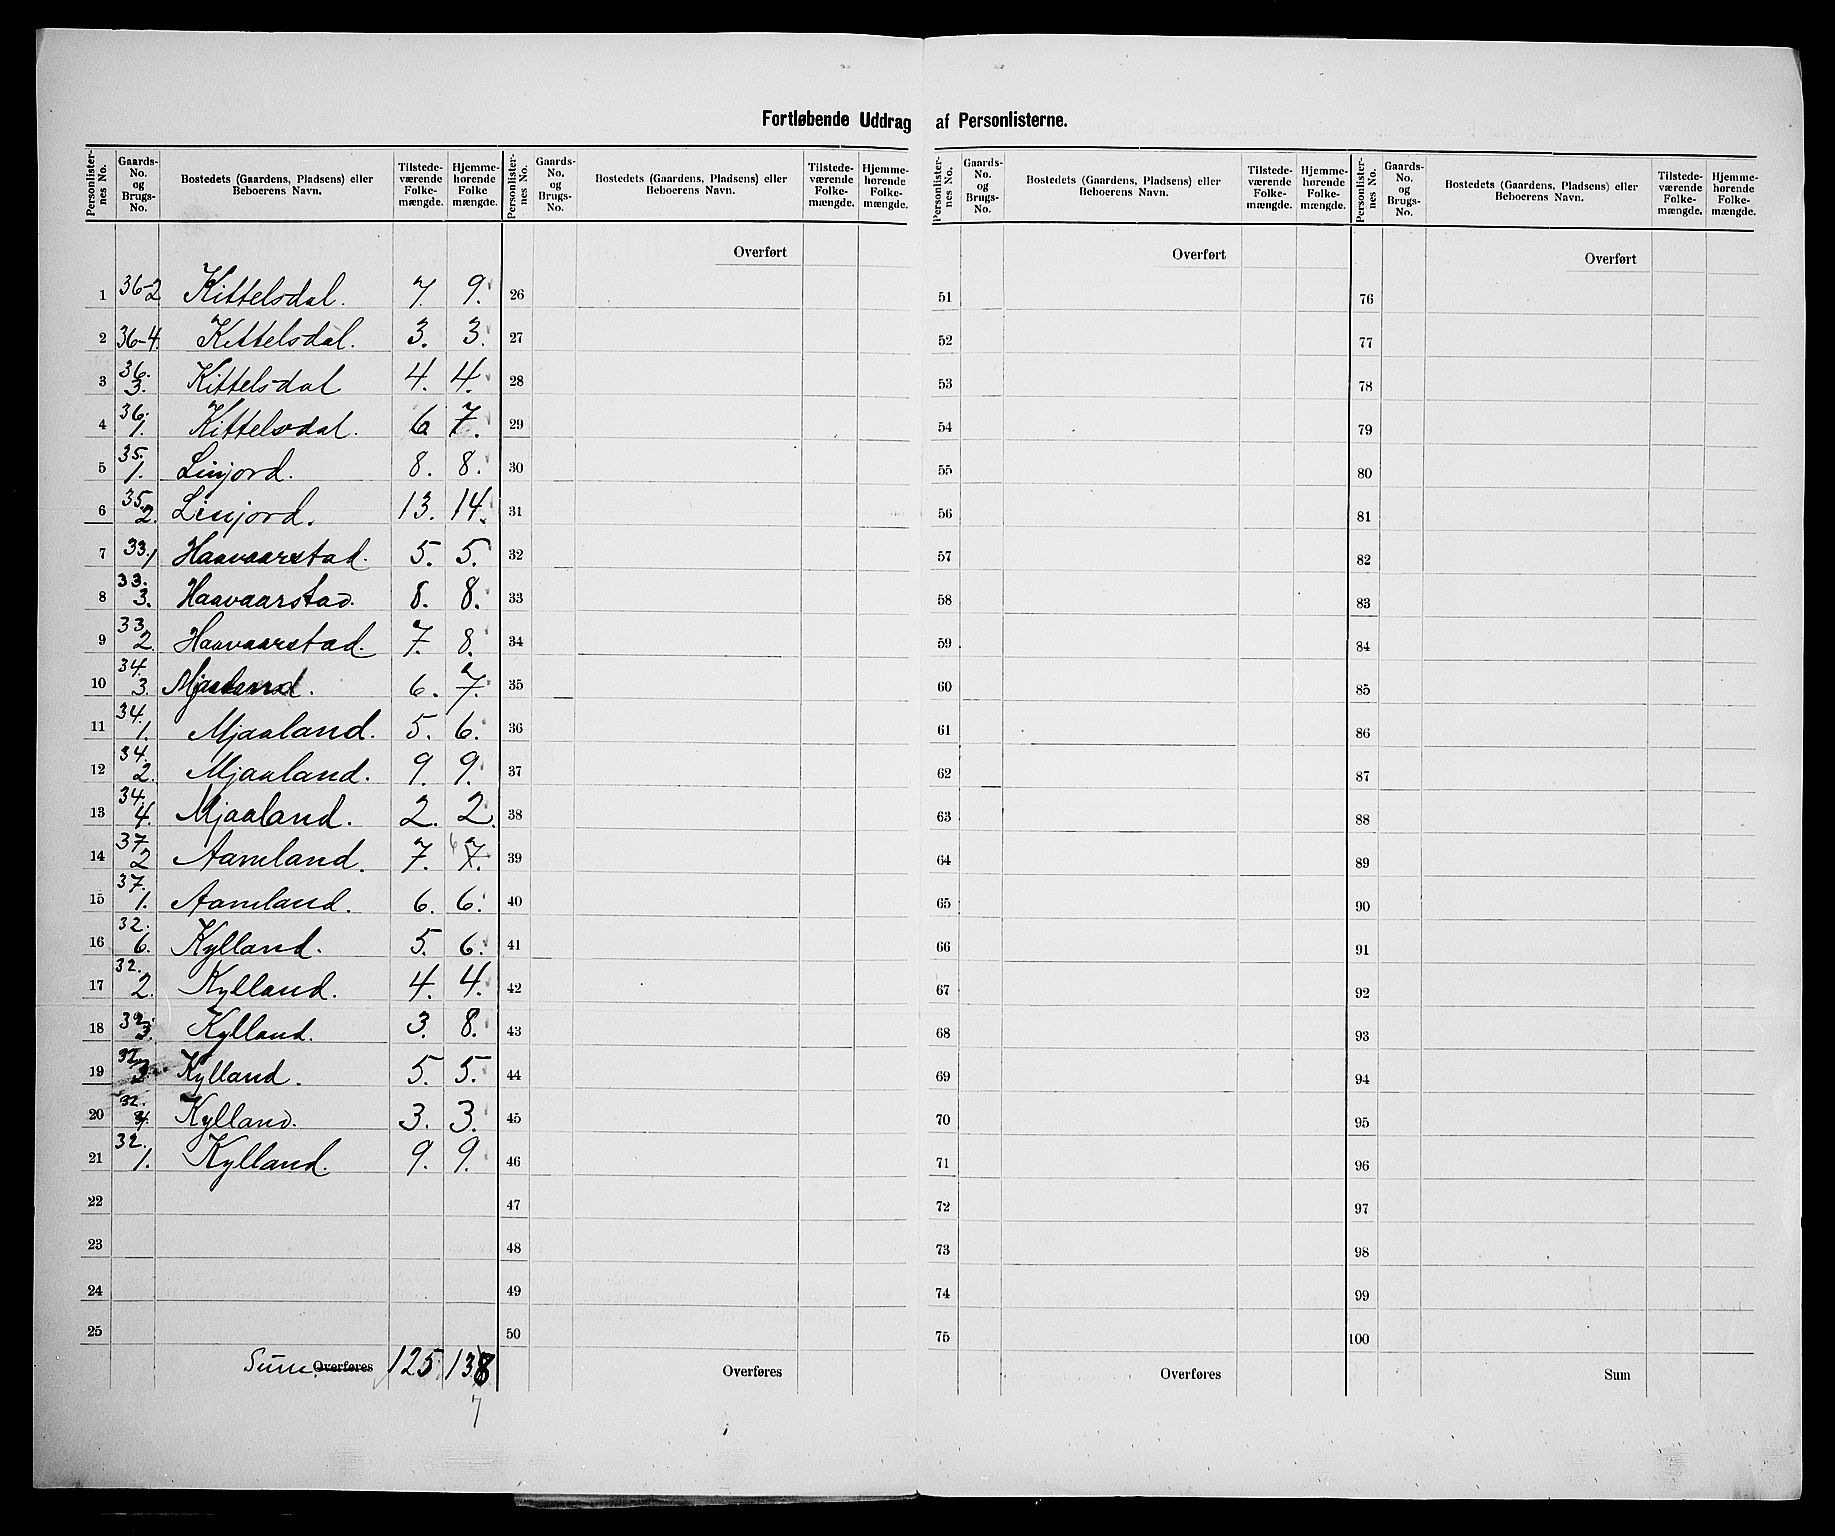 Fortløbende Uddrag af Personlisterne.
Personlisternes No. | Gaards-No. og Brugs-No. | Bostedets (Gaardens, Pladsens) eller Beboerens Navn. | Tilstedeværende Folkemængde. | Hjemmehørende Folkemængde.
Personlisternes No. | Gaards-No. og Brugs-No. | Bostedets (Gaardens, Pladsens) eller Beboerens Navn. | Tilstedeværende Folkemængde. | Hjemmehørende Folkemængde.
Personlisternes No. | Gaards-No. og Brugs-No. | Bostedets (Gaardens, Pladsens) eller Beboerens Navn. | Tilstedeværende Folkemængde. | Hjemmehørende Folkemængde.
Personlisternes No. | Gaards-No. og Brugs-No. | Bostedets (Gaardens, Pladsens) eller Beboerens Navn. | Tilstedeværende Folkemængde. | Hjemmehørende Folkemængde.
Overført Overført Overført
1 36-2 Kittelsdal. 7. 9. 26 51 76
2 36-4. Kittelsdal. 3. 3. 27 52 77
3 36. 3. Kittelsdal 4. 4. 28 53 78
4 36. 1. Kittelsdal. 6 7. 29 54 79
5 35. 1. Linjord. 8. 8. 30 55 80
6 35. 2. Linjord. 13. 14. 31 56 81
7 33. 1 Haavaarstad. 5. 5. 32 57 82
8 33. 3. Haavaarstad. 8. 8. 33 58 83
9 33. 2. Haavaarstad. 7. 8. 34 59 84
10 34. 3. Mjaaland. 6. 7. 35 60 85
11 34. 1. Mjaaland. 5. 6. 36 61 86
12 34. 2. Mjaaland. 9. 9. 37 62 87
13 34. 4. Mjaaland. 2. 2. 38 63 88
14 37. 2 Aamland. 7. 6 7. 39 64 89
15 37. 1. Aamland. 6. 6. 40 65 90
16 32. 6. Kylland. 5. 6. 41 66 91
17 32. 2. Kylland. 4. 4. 42 67 92
18 32. 3. Kylland. 3. 8. 43 68 93
19 32. 3. Kylland. 5. 5. 44 69 94
20 32. 4. Kylland. 3. 3. 45 70 95
21 32. 1. Kylland. 9. 9. 46 71 96
22 47 72 97
23 48 73 98
24 49 74 99
25 50 75 100
Sum. Overføres 125. 138 Overføres Overføres Sum
7